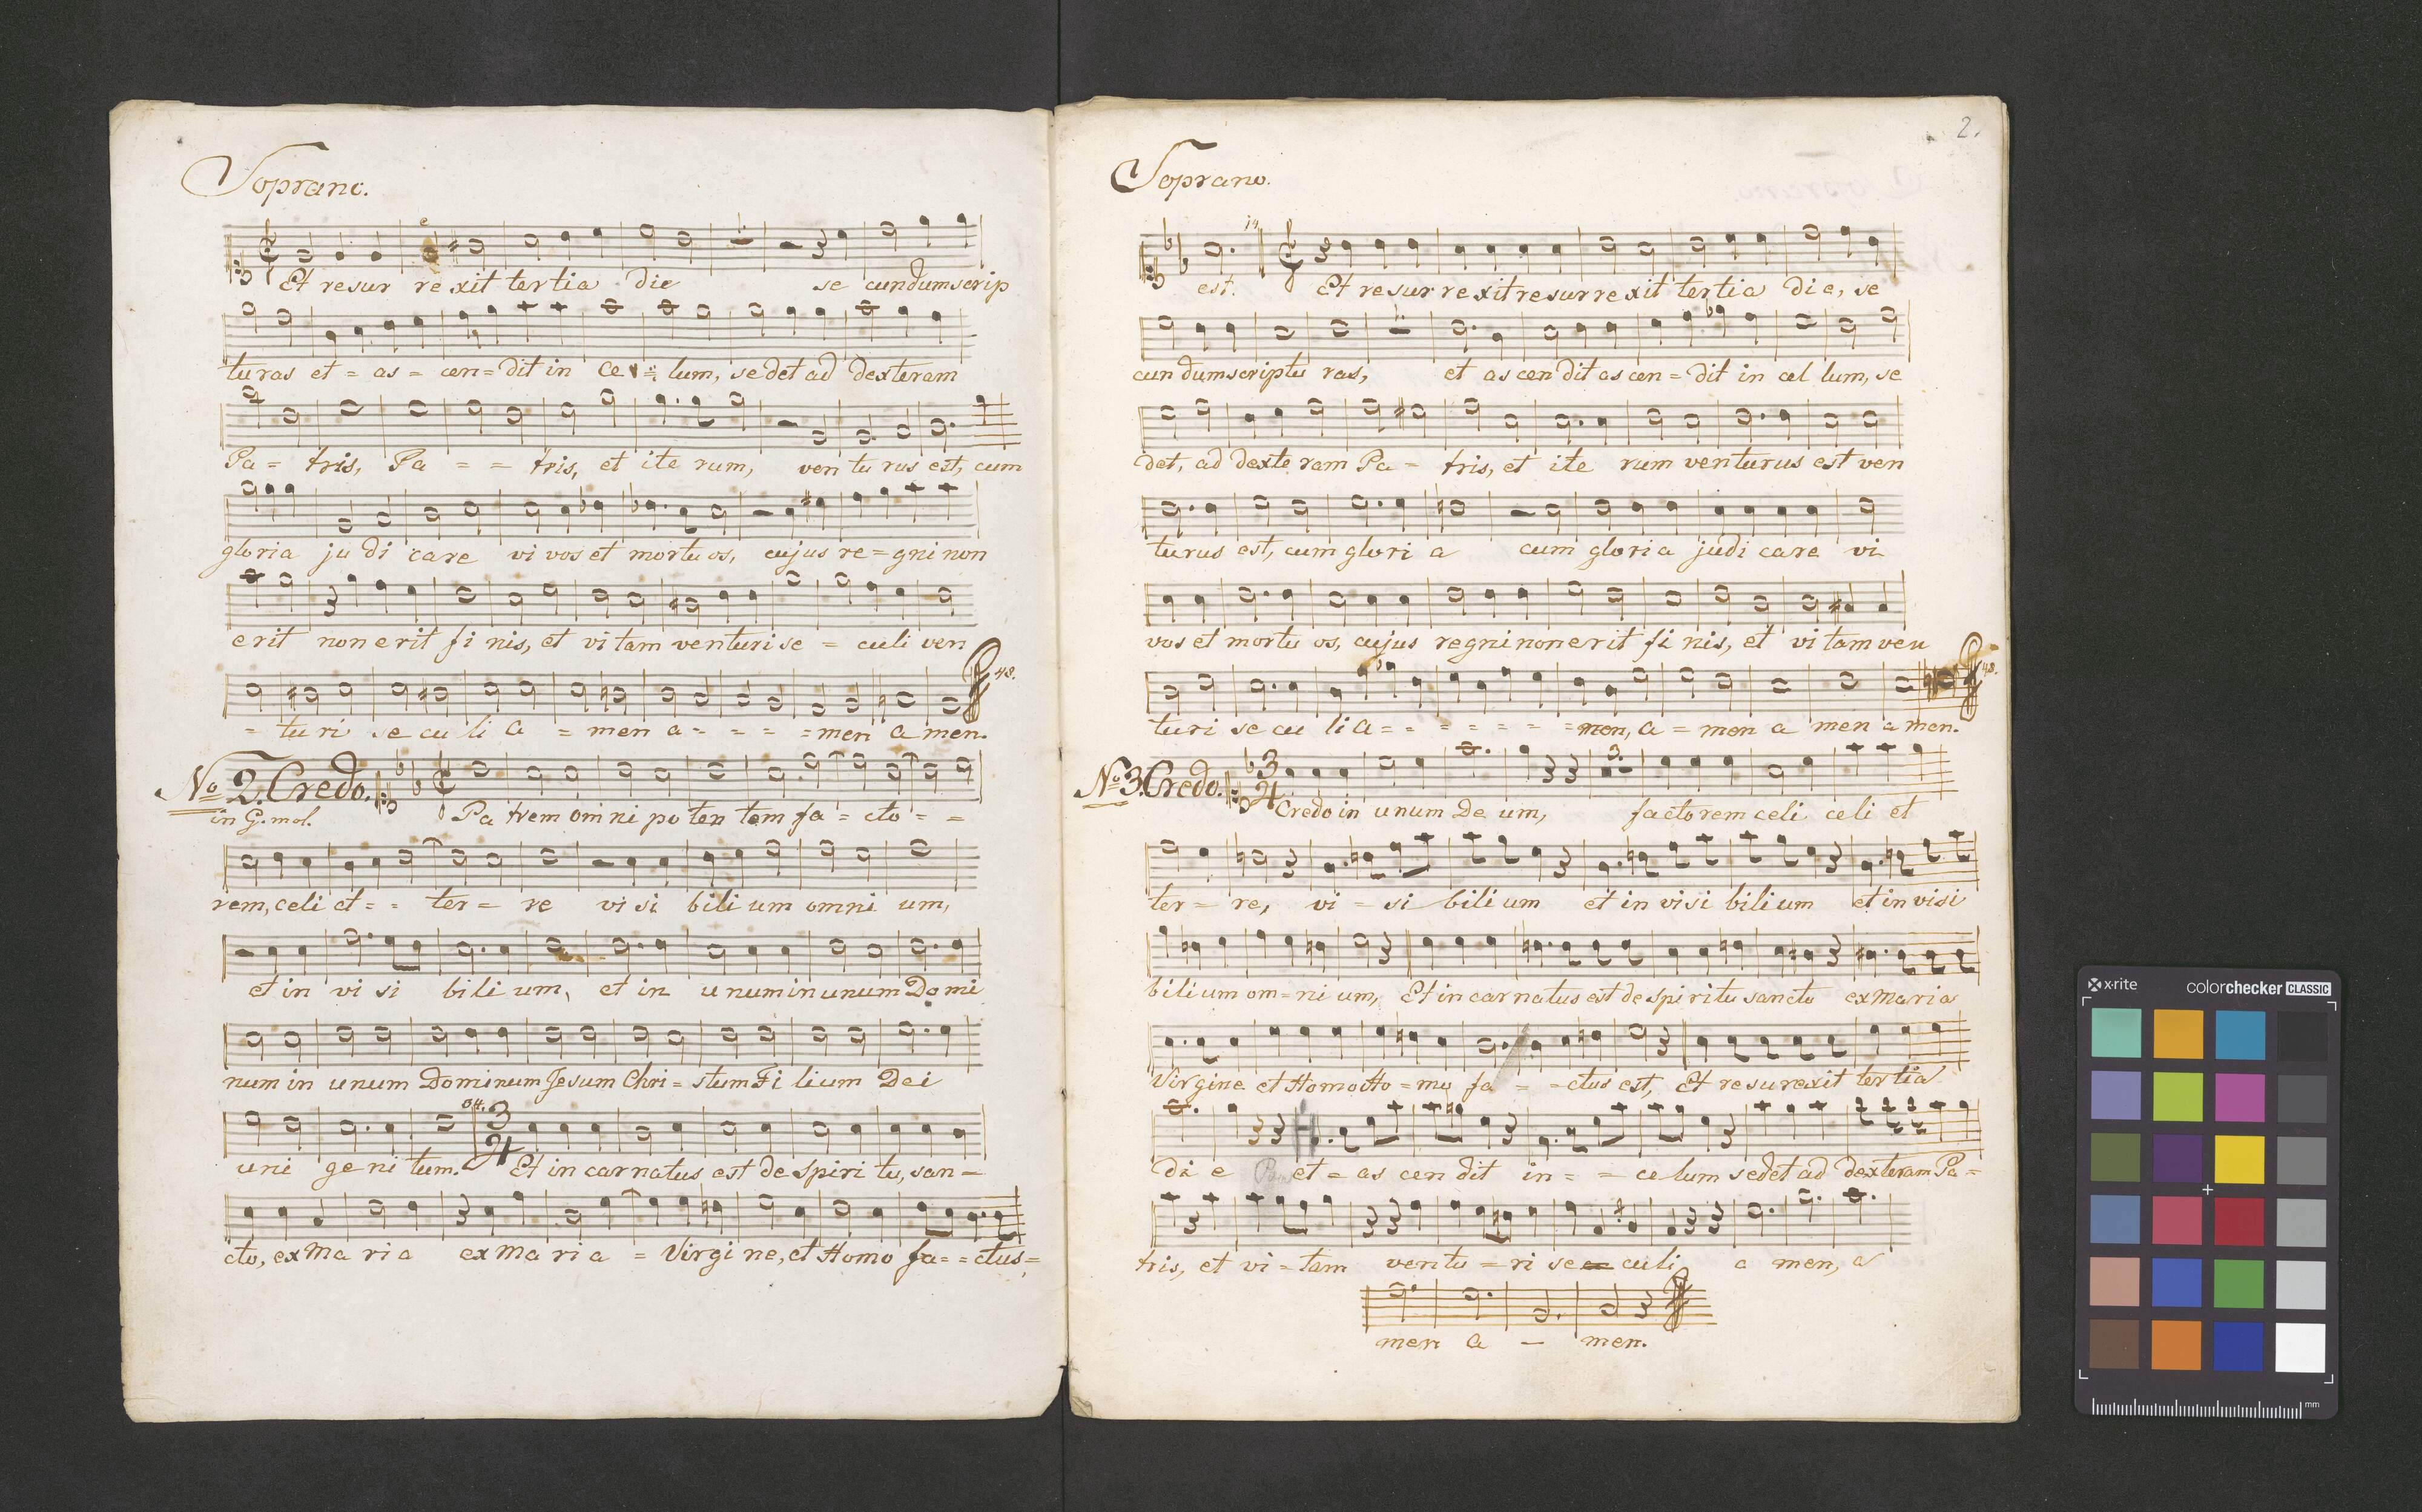 Soprano.
Et resur re xit ter tia die se cundum scrip
turas et = as = cen = dit in ce = lum, sedet ad dexteram
Pa = tris, Pa = = tris, et ite rum, ven tu rus est, cum
gloria ju di care vi vos et mortu os, cujus re = gni non
erit non erit fi nis, et vi tam venturi se = culi ven
48.
= tu ri se cu li a = men a = = = = men a men.
No 2. Credo.
in G. mol.
Pa trem om ni po ten tem fa = cto = =
rem, celi et = = ter = re vi si bili um omni um,
et in vi si bi li um, et in unum in unum Domi
num in unum Dominum Jesum Chri = stum Fi lium Dei
34. 3 4
uni ge ni tum. Et in carnatus est de spiri tu, san =
cto, ex Ma ri a ex Ma ri a = Virgi ne, et Homo fa = = ctus =
2.
Soprano.
14
est. Et resur re xit resur re xit ter tia di e, se
cun dum scriptu ras, et as cen dit as cen = dit in cel lum, se
det, ad dexte ram Pa = tris, et ite rum venturus est ven
turus est, cum glori a cum gloria judi care vi
vos et mortu os, cujus regni non erit fi nis, et vi tam ven
48.
turi se cu li a = = = = = = = men, a = men a men a men.
No 3. Credo. 3 4 3.
Credo in unum De um, factorem celi celi et
ter = re, vi = si bili um et in visi bilium et in visi
bili um om = ni um, Et in carnatus est de spiritu sancto ex Maria
Virgine et Homo Ho = mo fa = = ctus est, Et resurexit tertia
di e et = as cen dit in = = ce lum sedet ad dexteram Pa =
tris, et vi = tam ventu = ri se culi a men, a
men a = men.
x·rite colorchecker CLASSIC
mm